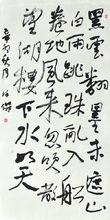 黑雲翻墨未遮山
白雨跳珠亂入船
卷地風來忽吹散
望湖樓下水如天
辛卯秋月